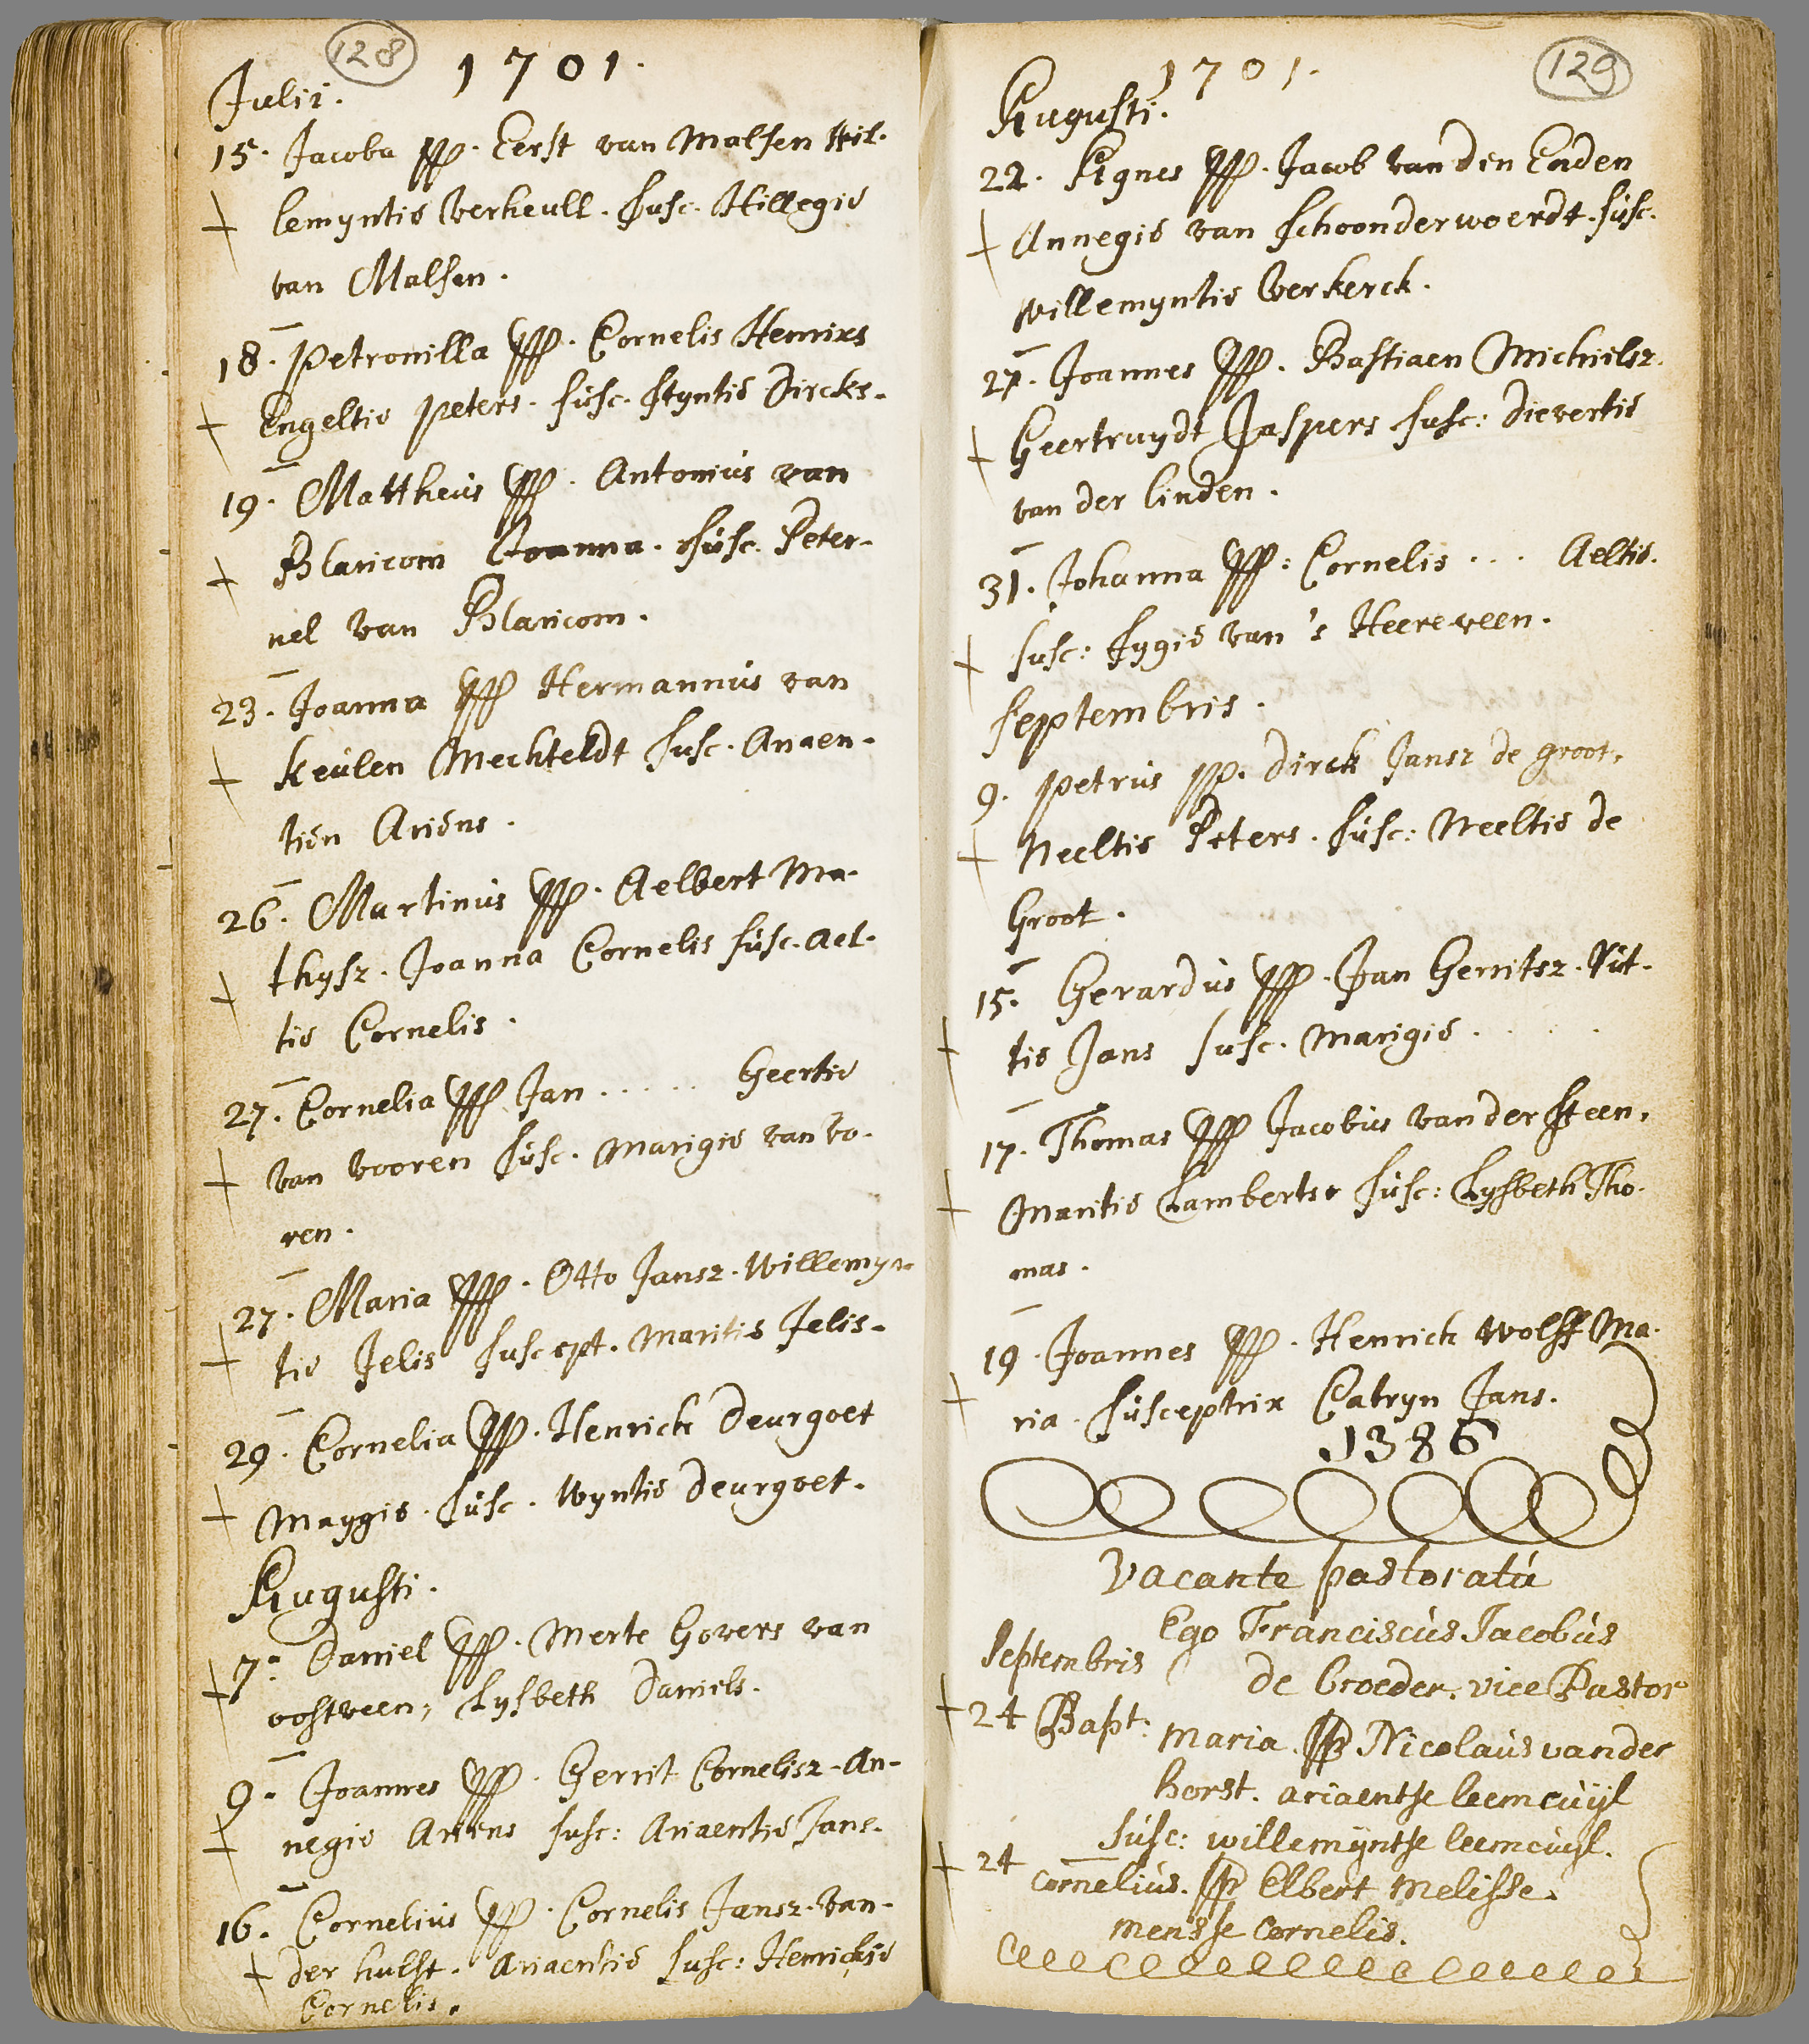 128
1701.
Julii.
15. Jacoba pp. Eerst van Malsen Wil-
+ lemyntie Verheull. susc. Hillegie
van Malsen.
18. Petronilla pp. Cornelis Henrixs
+ Engeltie Peters. susc. Styntie Dircks.
19. Mattheus pp. Antonius van
+ Blaricom Joanna. susc. Peter-
nel van Blaricom.
23. Joanna pp Hermannus van
+ Keulen Mechteldt susc. Anaen-
tien Ariens.
26. Martinus pp. Aelbert Ma-
+ thysz. Joanna Cornelis susc. Ael-
tie Cornelis.
27. Cornelia pp Jan ..... Geertie
+ van vooren susc. Marigie van vo-
ren.
27. Maria pp. Otto Jansz. Willemyn-
+ tie Jelis suscept. Maritie Jelis.
29. Cornelia pp. Henrick Deurgoet
+ Maygie. susc. Wyntie Deurgoet.
Augusti.
+ 7. Daniel pp. Merte Govers van
oostveen, Lysbeth Daniels.
9. Joannes pp. Gerrit Cornelisz. An-
+ negie Ariens susc: Ariaentie Jans.
16. Cornelius pp. Cornelis Jansz. van-
+ der hulst. Ariaentie susc: Henrickie
Cornelis.
129
1701.
Augusti.
22. Agnes pp. Jacob van den Enden
+ Annegie van Schoonderwoerdt. susc.
Willemyntie Verkerck.
27. Joannes pp. Bastiaen Michielsz.
+ Geertruydt Jaspers susc: Dievertie
van der Linden.
31. Johanna pp: Cornelis ... Aeltie.
+ susc: Fygie van 's Heereveen.
Septembris.
9. Petrus pp. Dirck Jansz de groot,
+ Neeltie Peters. susc: Neeltie de
Groot.
15. Gerardus pp. Jan Gerritsz. Rut-
+ tie Jans susc. Marigie .....
17. Thomas pp Jacobus van der Steen,
+ Maritie Lamberts susc: Lysbeth Tho-
mas.
19. Joannes pp. Henrick Wolff Ma-
+ ria. susceptrix Catryn Jans.
1386
Vacante pastoratu
Ego Franciscus Jacobus
Septembris de Broeder. vice Pastor
+ 24 Bapt: Maria. pp Nicolaus vander
horst. ariaentse leemcuijl
susc: willemijntse leemcuijl.
+ 24 Cornelius. pp Elbert Melisse.
mensse Cornelis.